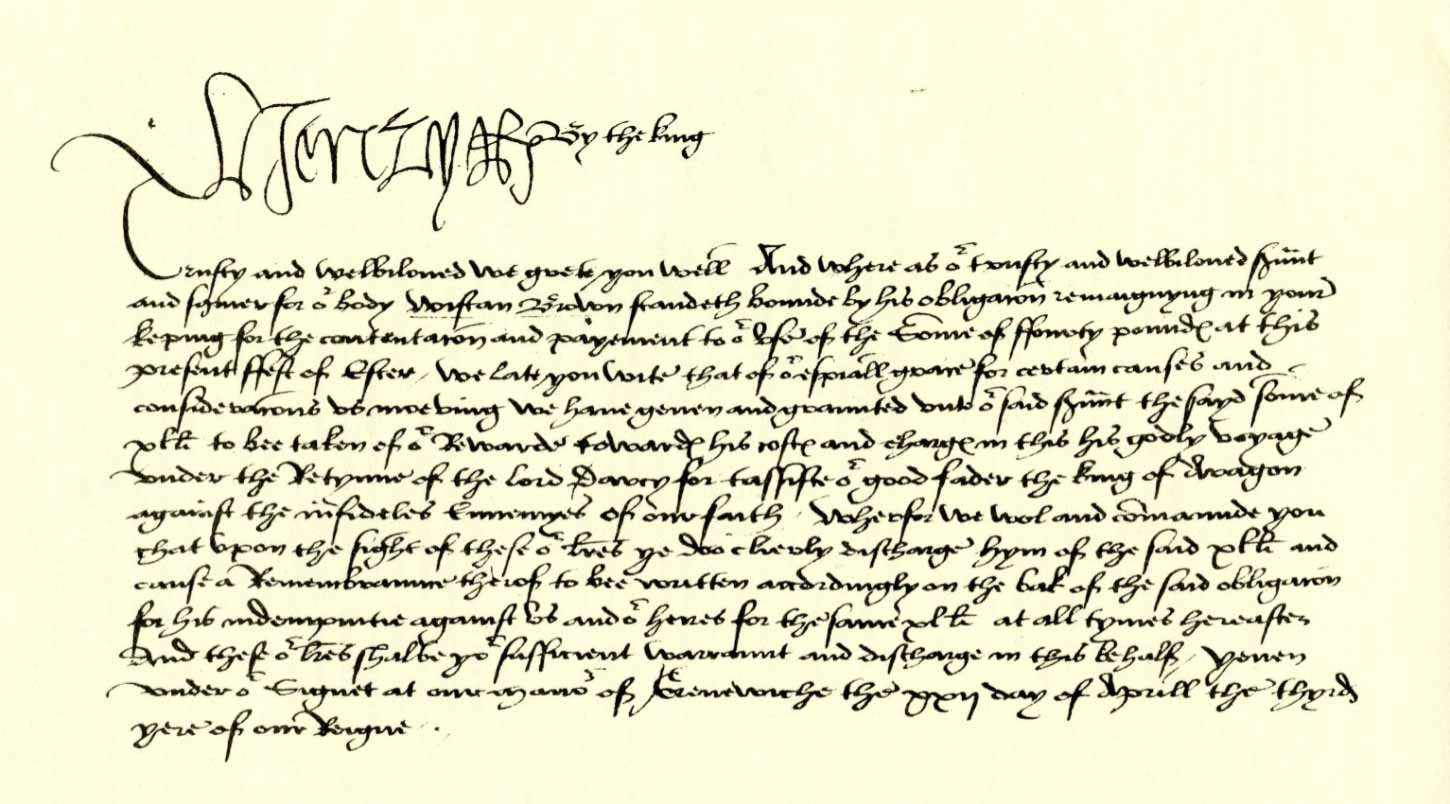 Henry R By the king
Trusty and welbiloued we grete you well And where as or trusty and welbiloued sruunt
and sqwier for or body Wistan Brown standeth bounde by his obligacon remaignyng in your
keping for the contentacon and payement to or vse of the Some of ffourty poundes at this
present ffest of Ester / we late you wite that of or espiall grace for certain causes and
consideracons vs moeving we haue geuen and graunted vnto or said sruunt the sayd some of
xlli to bee taken of or Rewarde towardes his costes and charges in this his godly voyage
vnder the Retynue of the lord Darcy for tassiste or good fader the king of Aragon
against the infideles Ennemyes of our faith / Wherfor we wol and comaunde you
that vpon the sight of these or lres ye doo clierly discharge hym of the said xlli and
cause a Remembraunce therof to bee written accordingly on the bak of the said obligacon
for his indempnitie against vs and or heires for the same xlli at all tymes hereafter
And these or lres shalbe yor sufficient warraunt and discharge in this behalf / yeuen
vnder or Signet at our manor of Grenewiche the xxij day of Aprill the thyrd
yere of our Reigne